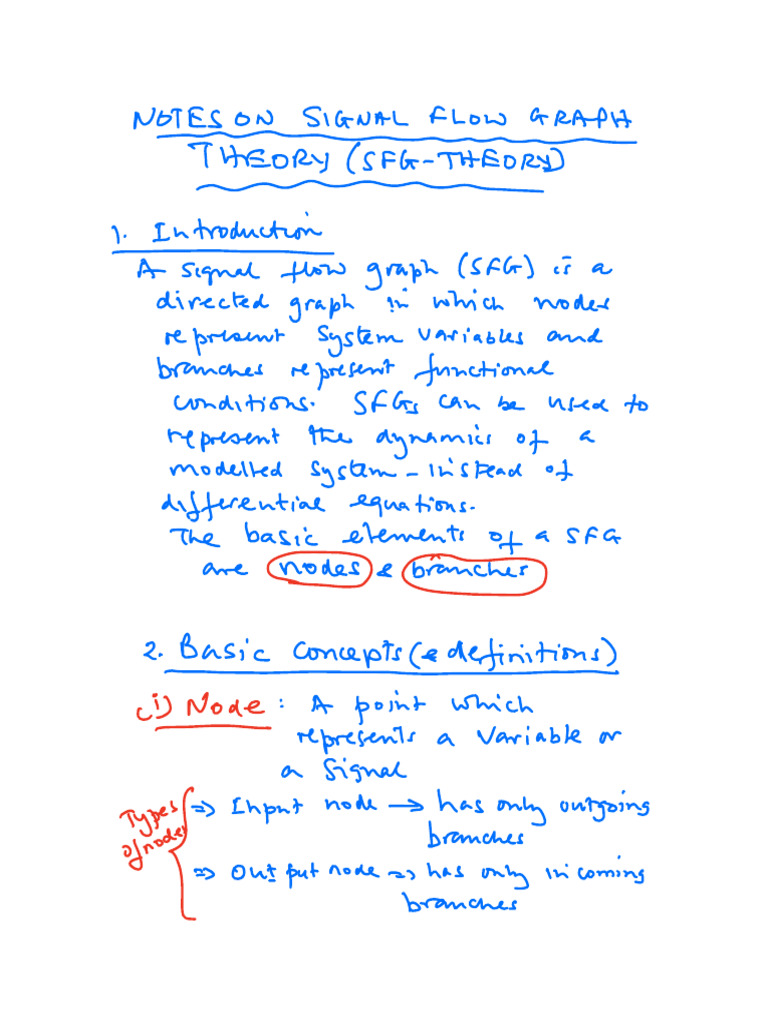 NOTES ON SIGNAL FLOW GRAPH
THEORY (SFG-THEORY)
1. Introduction
A signal flow graph (SFG) is a
directed graph in which nodes
represent system variables and
branches represent functional
conditions. SFGs can be used to
represent the dynamics of a
modelled system - instead of
differential equations.
The basic elements of a SFG
are nodes & branches
2. Basic Concepts (& definitions)
(i) Node: A point which
represents a variable or
a signal
Types of nodes
⇒ Input node → has only outgoing
branches
⇒ Output node ⇒ has only incoming
branches